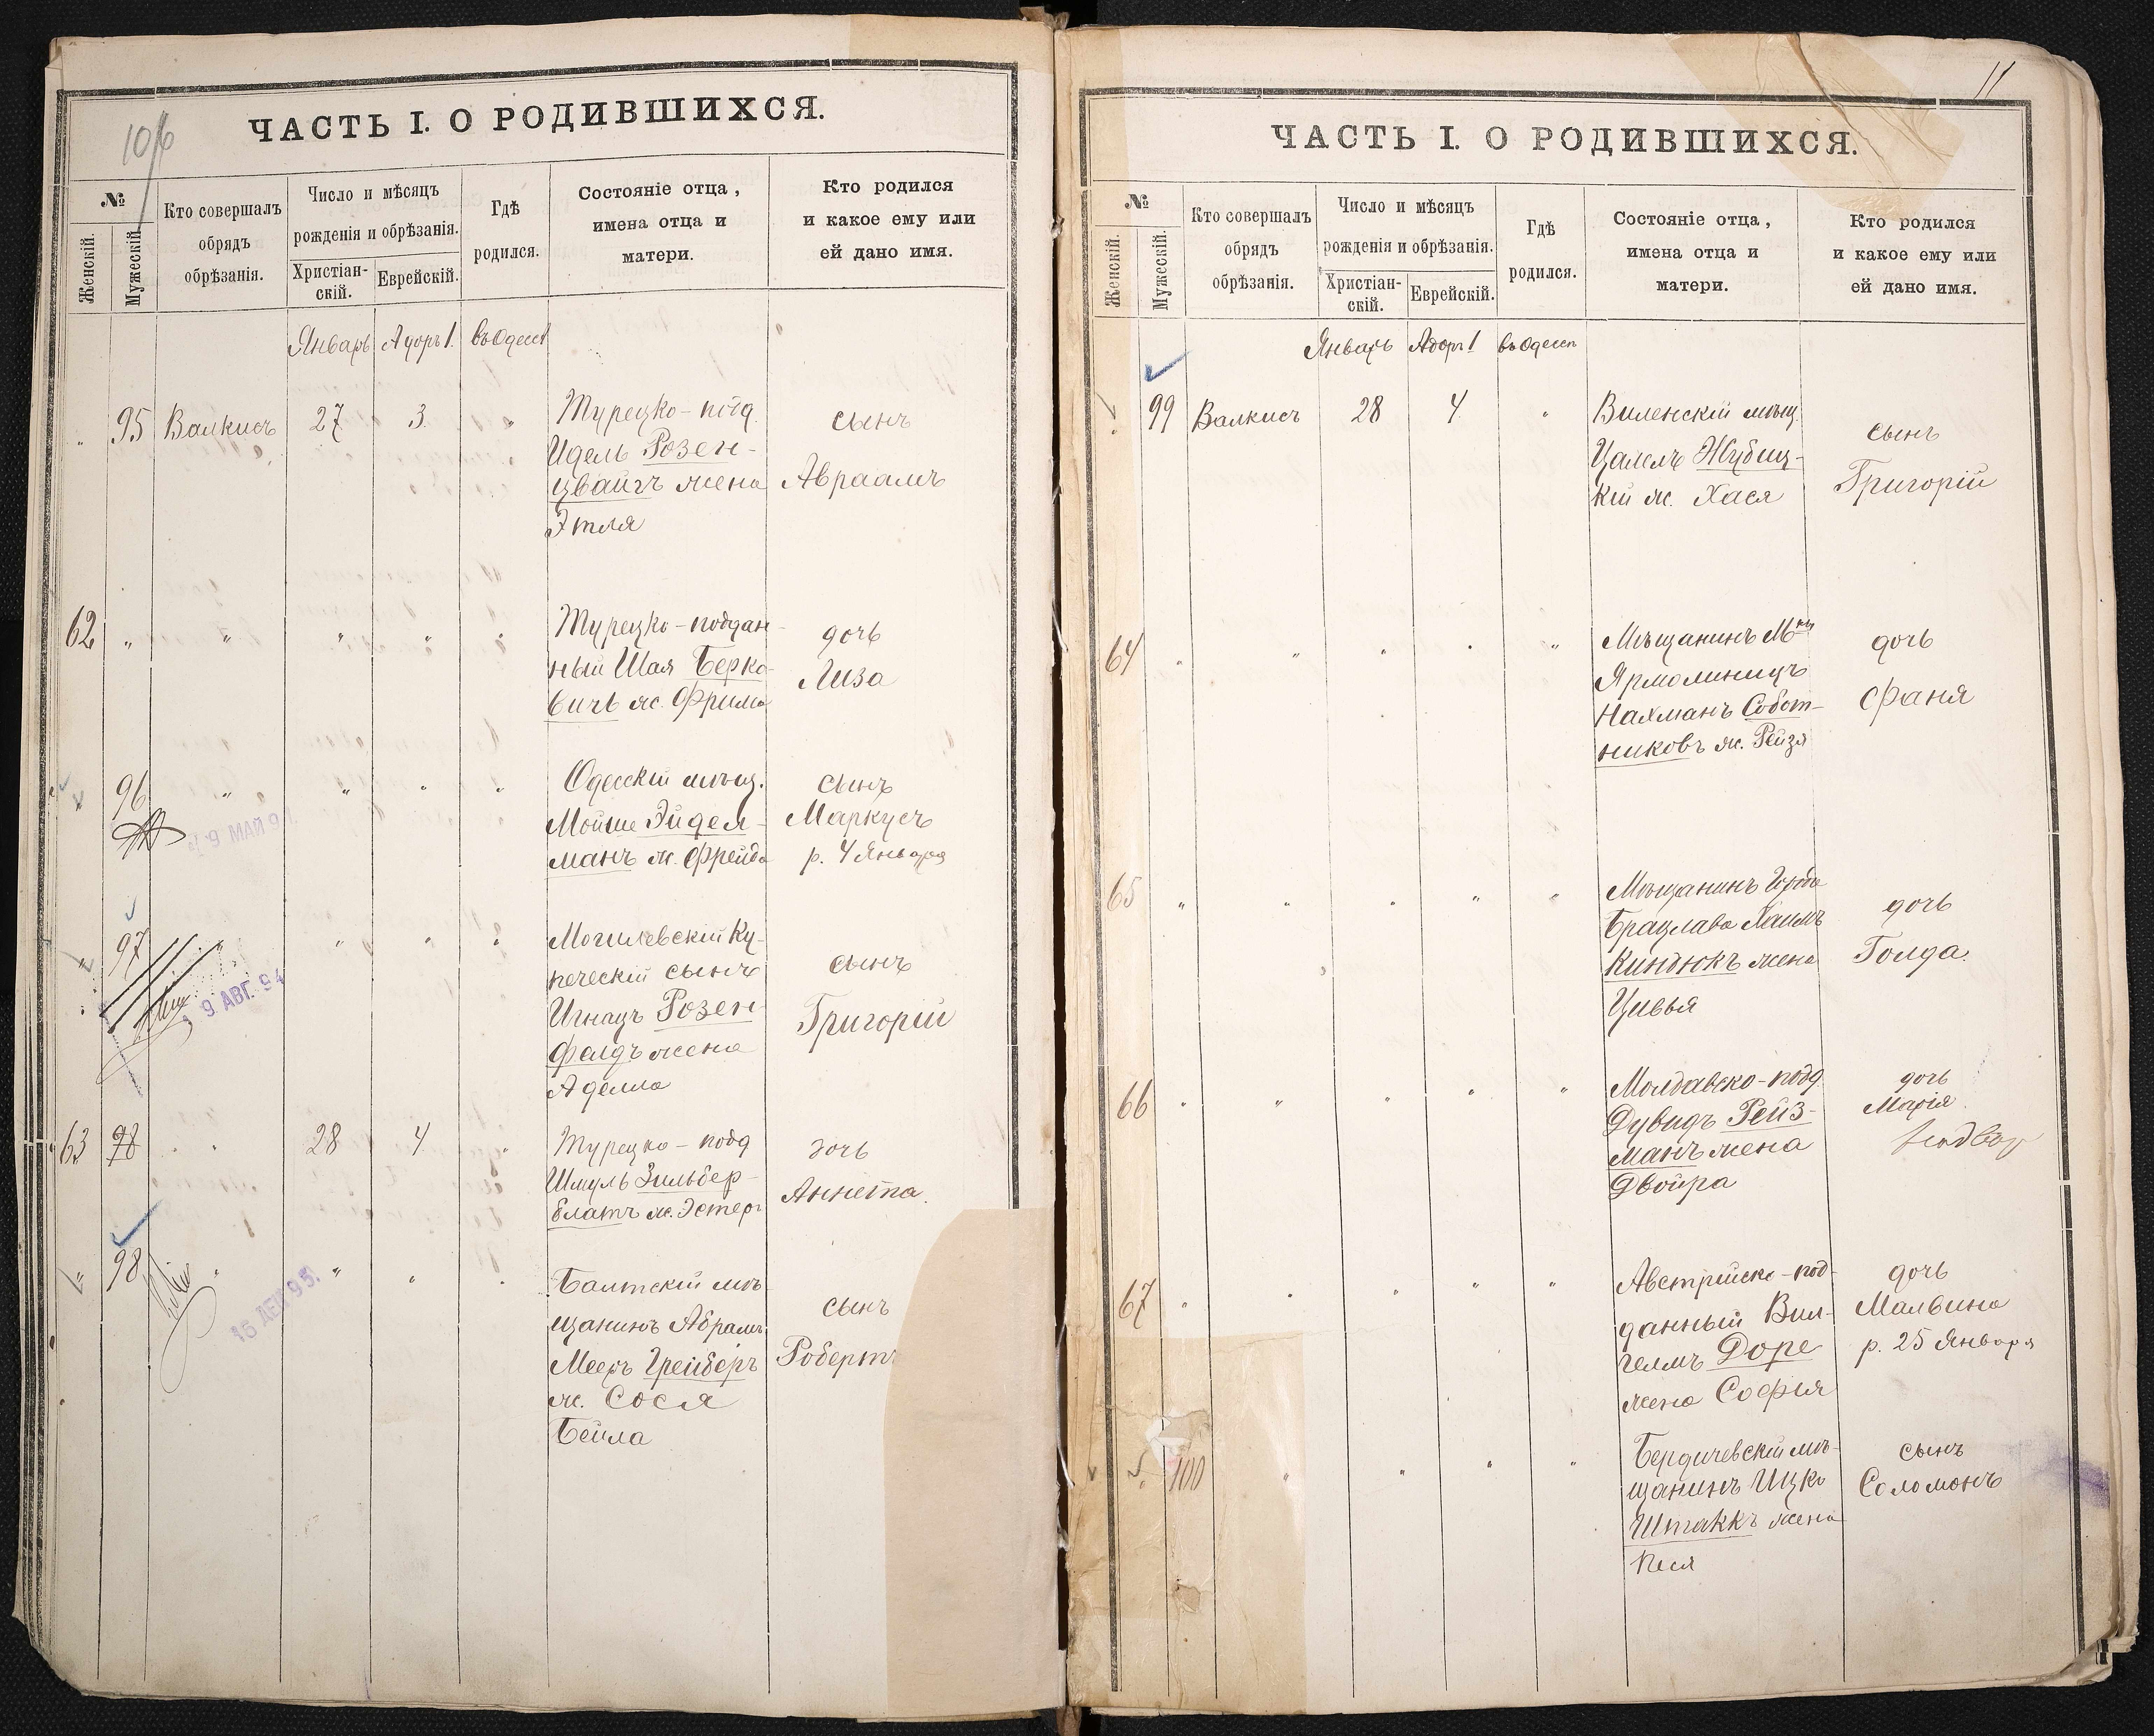 10/6
ЧАСТЬ I. О РОДИВШИХСЯ.
№
Женскій.
Мужескій.
Кто совершалъ
обрядъ
обрѣзанія.
Число и мѣсяцъ
рожденія и обрѣзанія.
Христіан-
скій.
Еврейскій.
Гдѣ
родился.
Состояніе отца,
имена отца и
матери.
Кто родился
и какое ему или
ей дано имя.
Январь Адоръ 1. въ Одессѣ
" 95 Валкисъ 27 3. "
Турецко-под.
Идель Розен-
цвайгъ жена
Этля
сынъ
Авраамъ
62 " " " " "
Турецко-поддан-
ный Шая Берко-
вичъ ж. Фрима
дочь
Лиза
" 96 " " " "
9 МАЙ 9
Одесскій мѣщ.
Мойше Эйдел-
манъ ж. Фрейда
сынъ
Маркусъ
р. 4 Января
" 97 " " " "
9 АВГ. 94
Могилевскій Ку-
печескій сынъ
Игнацъ Розен-
фелдъ жена
Аделла
сынъ
Григорій
63 98 " " 28 4 "
Турецко-подд
Шмуль Зильбер-
блатъ ж. Эстеръ
дочь
Аннета.
" 98 " " " "
15 ДЕК 95.
Балтскій мѣ-
щанинъ Абрамъ
Мееръ Грейберъ
ж. Сося
Бейла
сынъ
Робертъ
11
ЧАСТЬ I. О РОДИВШИХСЯ.
№
Женскій.
Мужескій.
Кто совершалъ
обрядъ
обрѣзанія.
Число и мѣсяцъ
рожденія и обрѣзанія.
Христіан-
скій.
Еврейскій.
Гдѣ
родился.
Состояніе отца,
имена отца и
матери.
Кто родился
и какое ему или
ей дано имя.
Январь Адоръ 1 въ Одессѣ
99 Валкисъ 28 4 "
Виленскій мѣщ.
Цалелъ Жубиц-
кій ж. Хася
сынъ
Григорій
64 " " " " "
Мѣщанинъ М
Ярмолинецъ
Нахманъ Собот-
никовъ ж. Рейзя
дочь
Фаня
65 " " " " "
Мѣщанинъ Города
Брацлава Хаимъ
Киндюкъ жена
Цивья
дочь
Голда.
66 " " " " "
Молдавско-подд
Дувидъ Рейз-
манъ жена
Двойра
дочь
Марія
67 " " " " "
Австрійско-под-
данный Вил-
гелмъ Доре
жена София
дочь
Малвина
р. 25 Января
" 100 " " " "
Бердичевскій мѣ-
щанинъ Ицко
Штаккъ жена
Песя
сынъ
Соломонъ